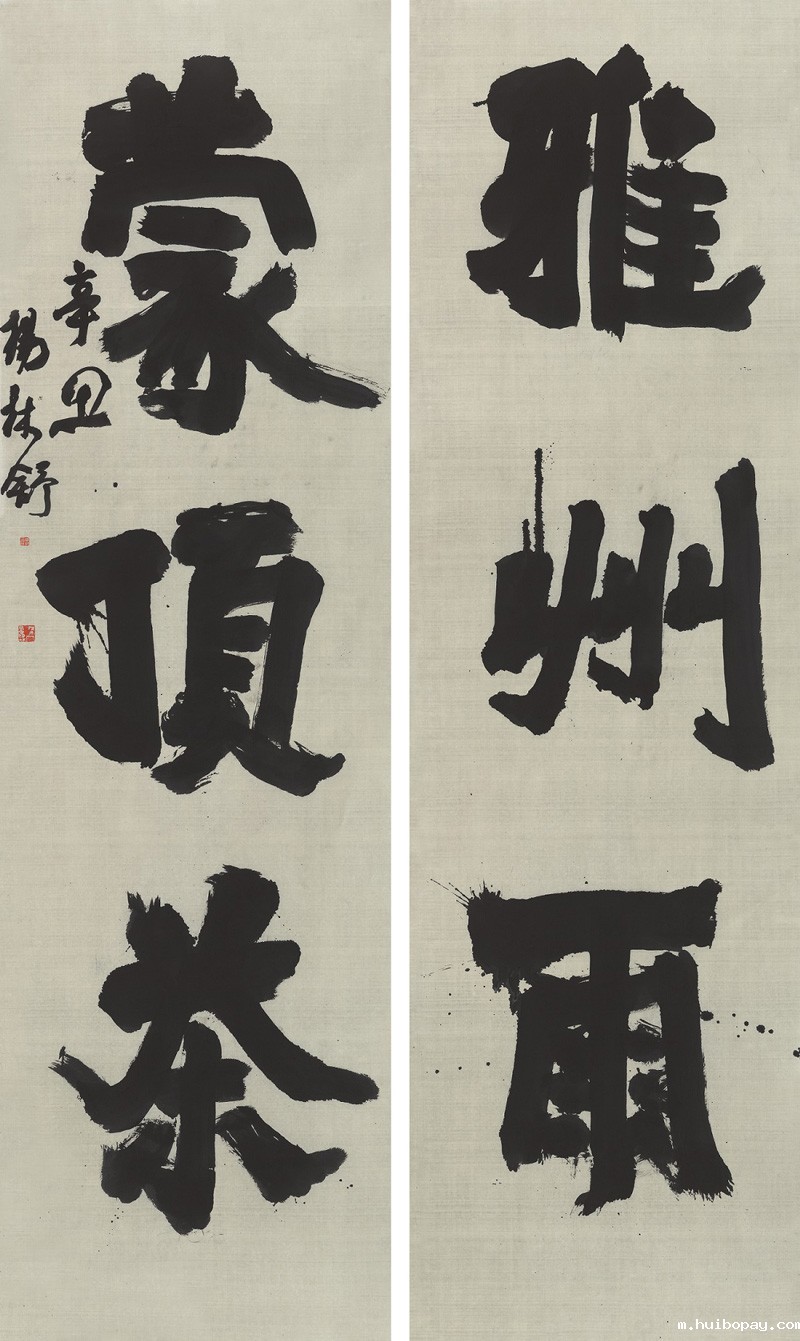 雅州雨
蒙頂茶
辛丑
楊林舒
m.huibopay.com